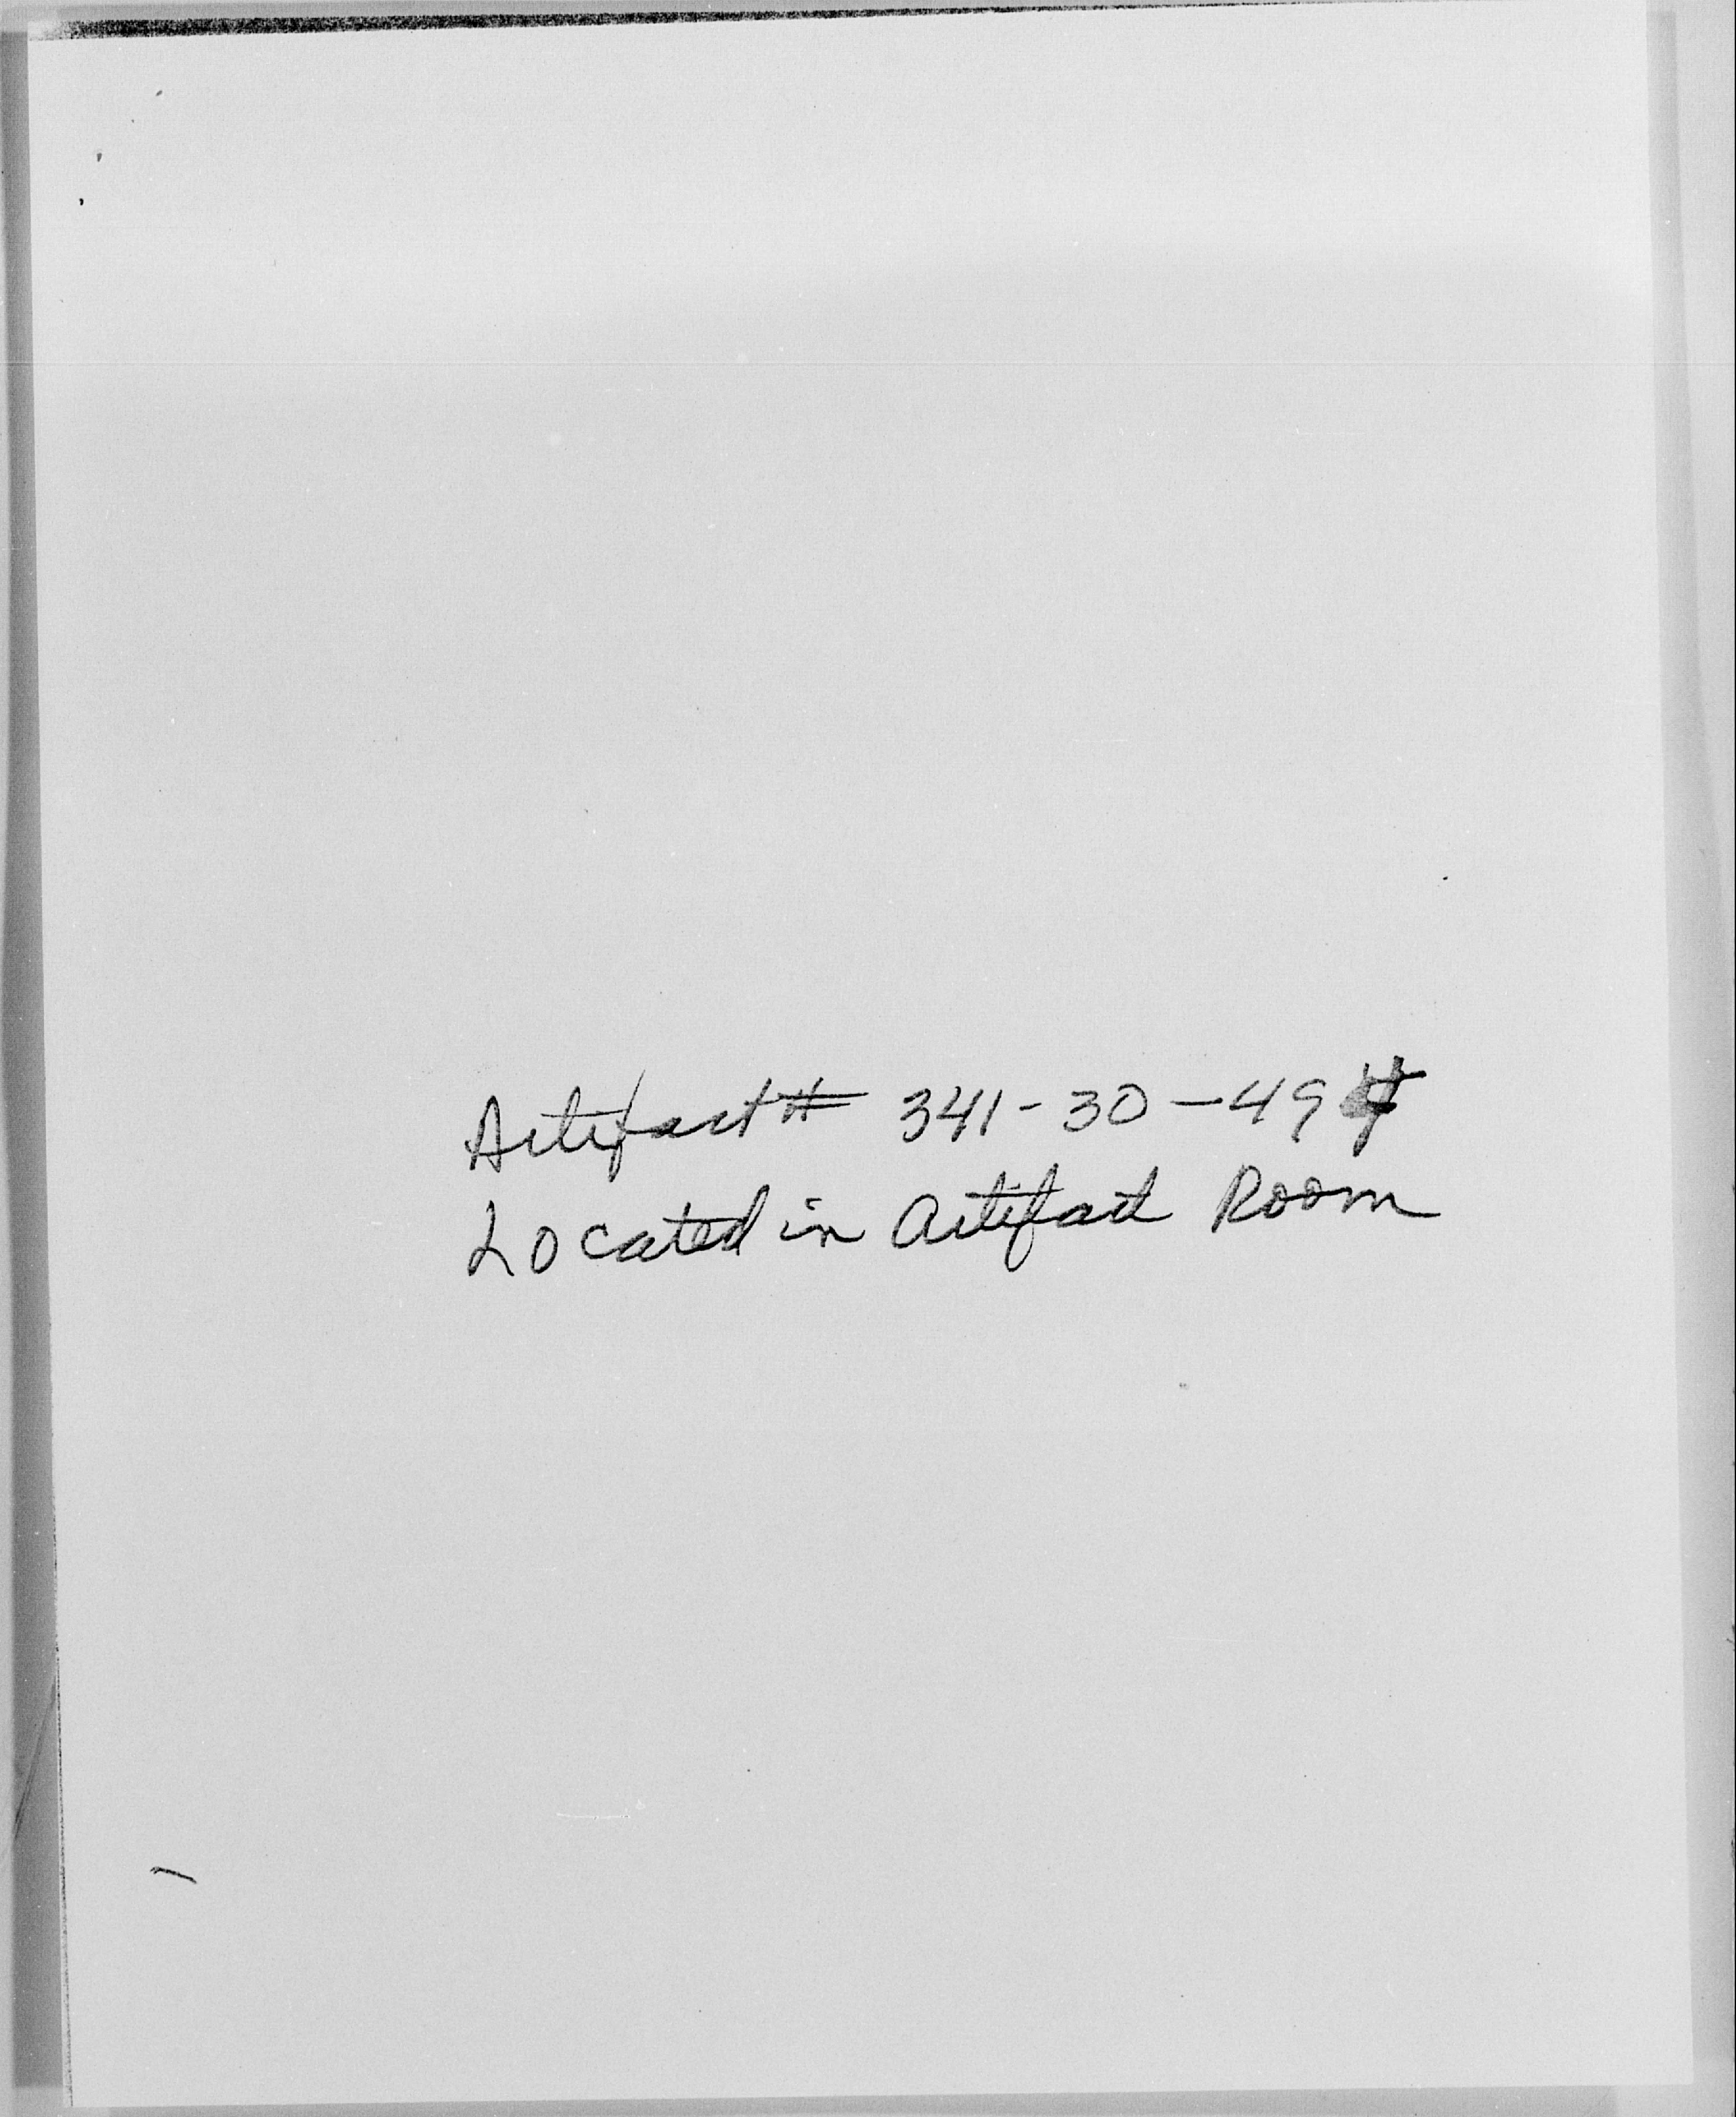 Artifact # 341-30-494
Located in Artifact Room